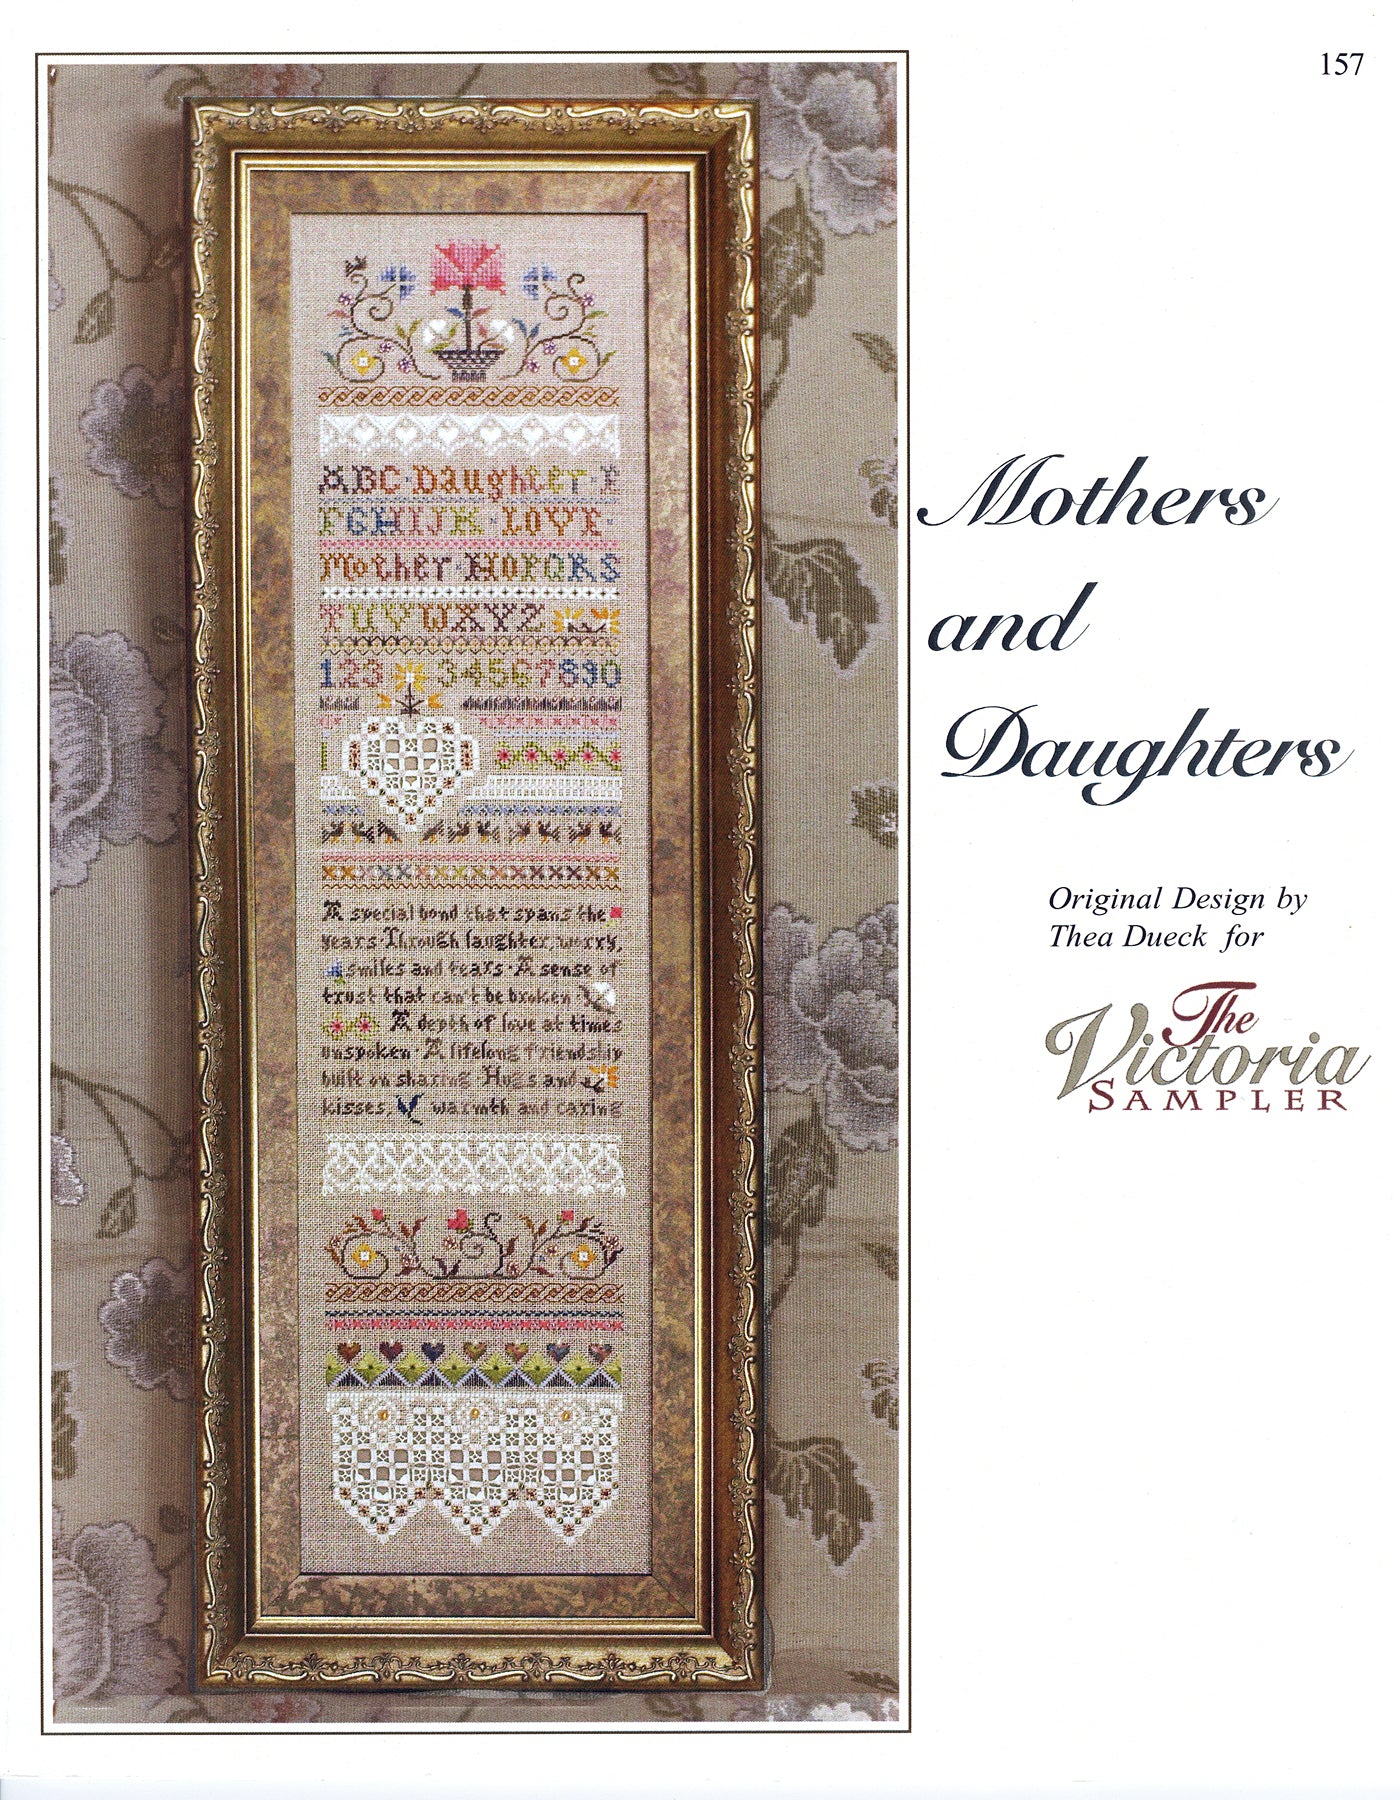 157
ABC·Daughter·E
FGHIJK·LOVE·
Mother·NOPQRS
TUVWXYZ
123 34567890
A special bond that spans the
years·Through laughter, worry,
smiles and tears·A sense of
trust that can't be broken·
A depth of love at times
unspoken·A lifelong friendship
built on sharing Hugs and
kisses, warmth and caring
Mothers
and
Daughters
Original Design by
Thea Dueck for
The
Victoria
SAMPLER